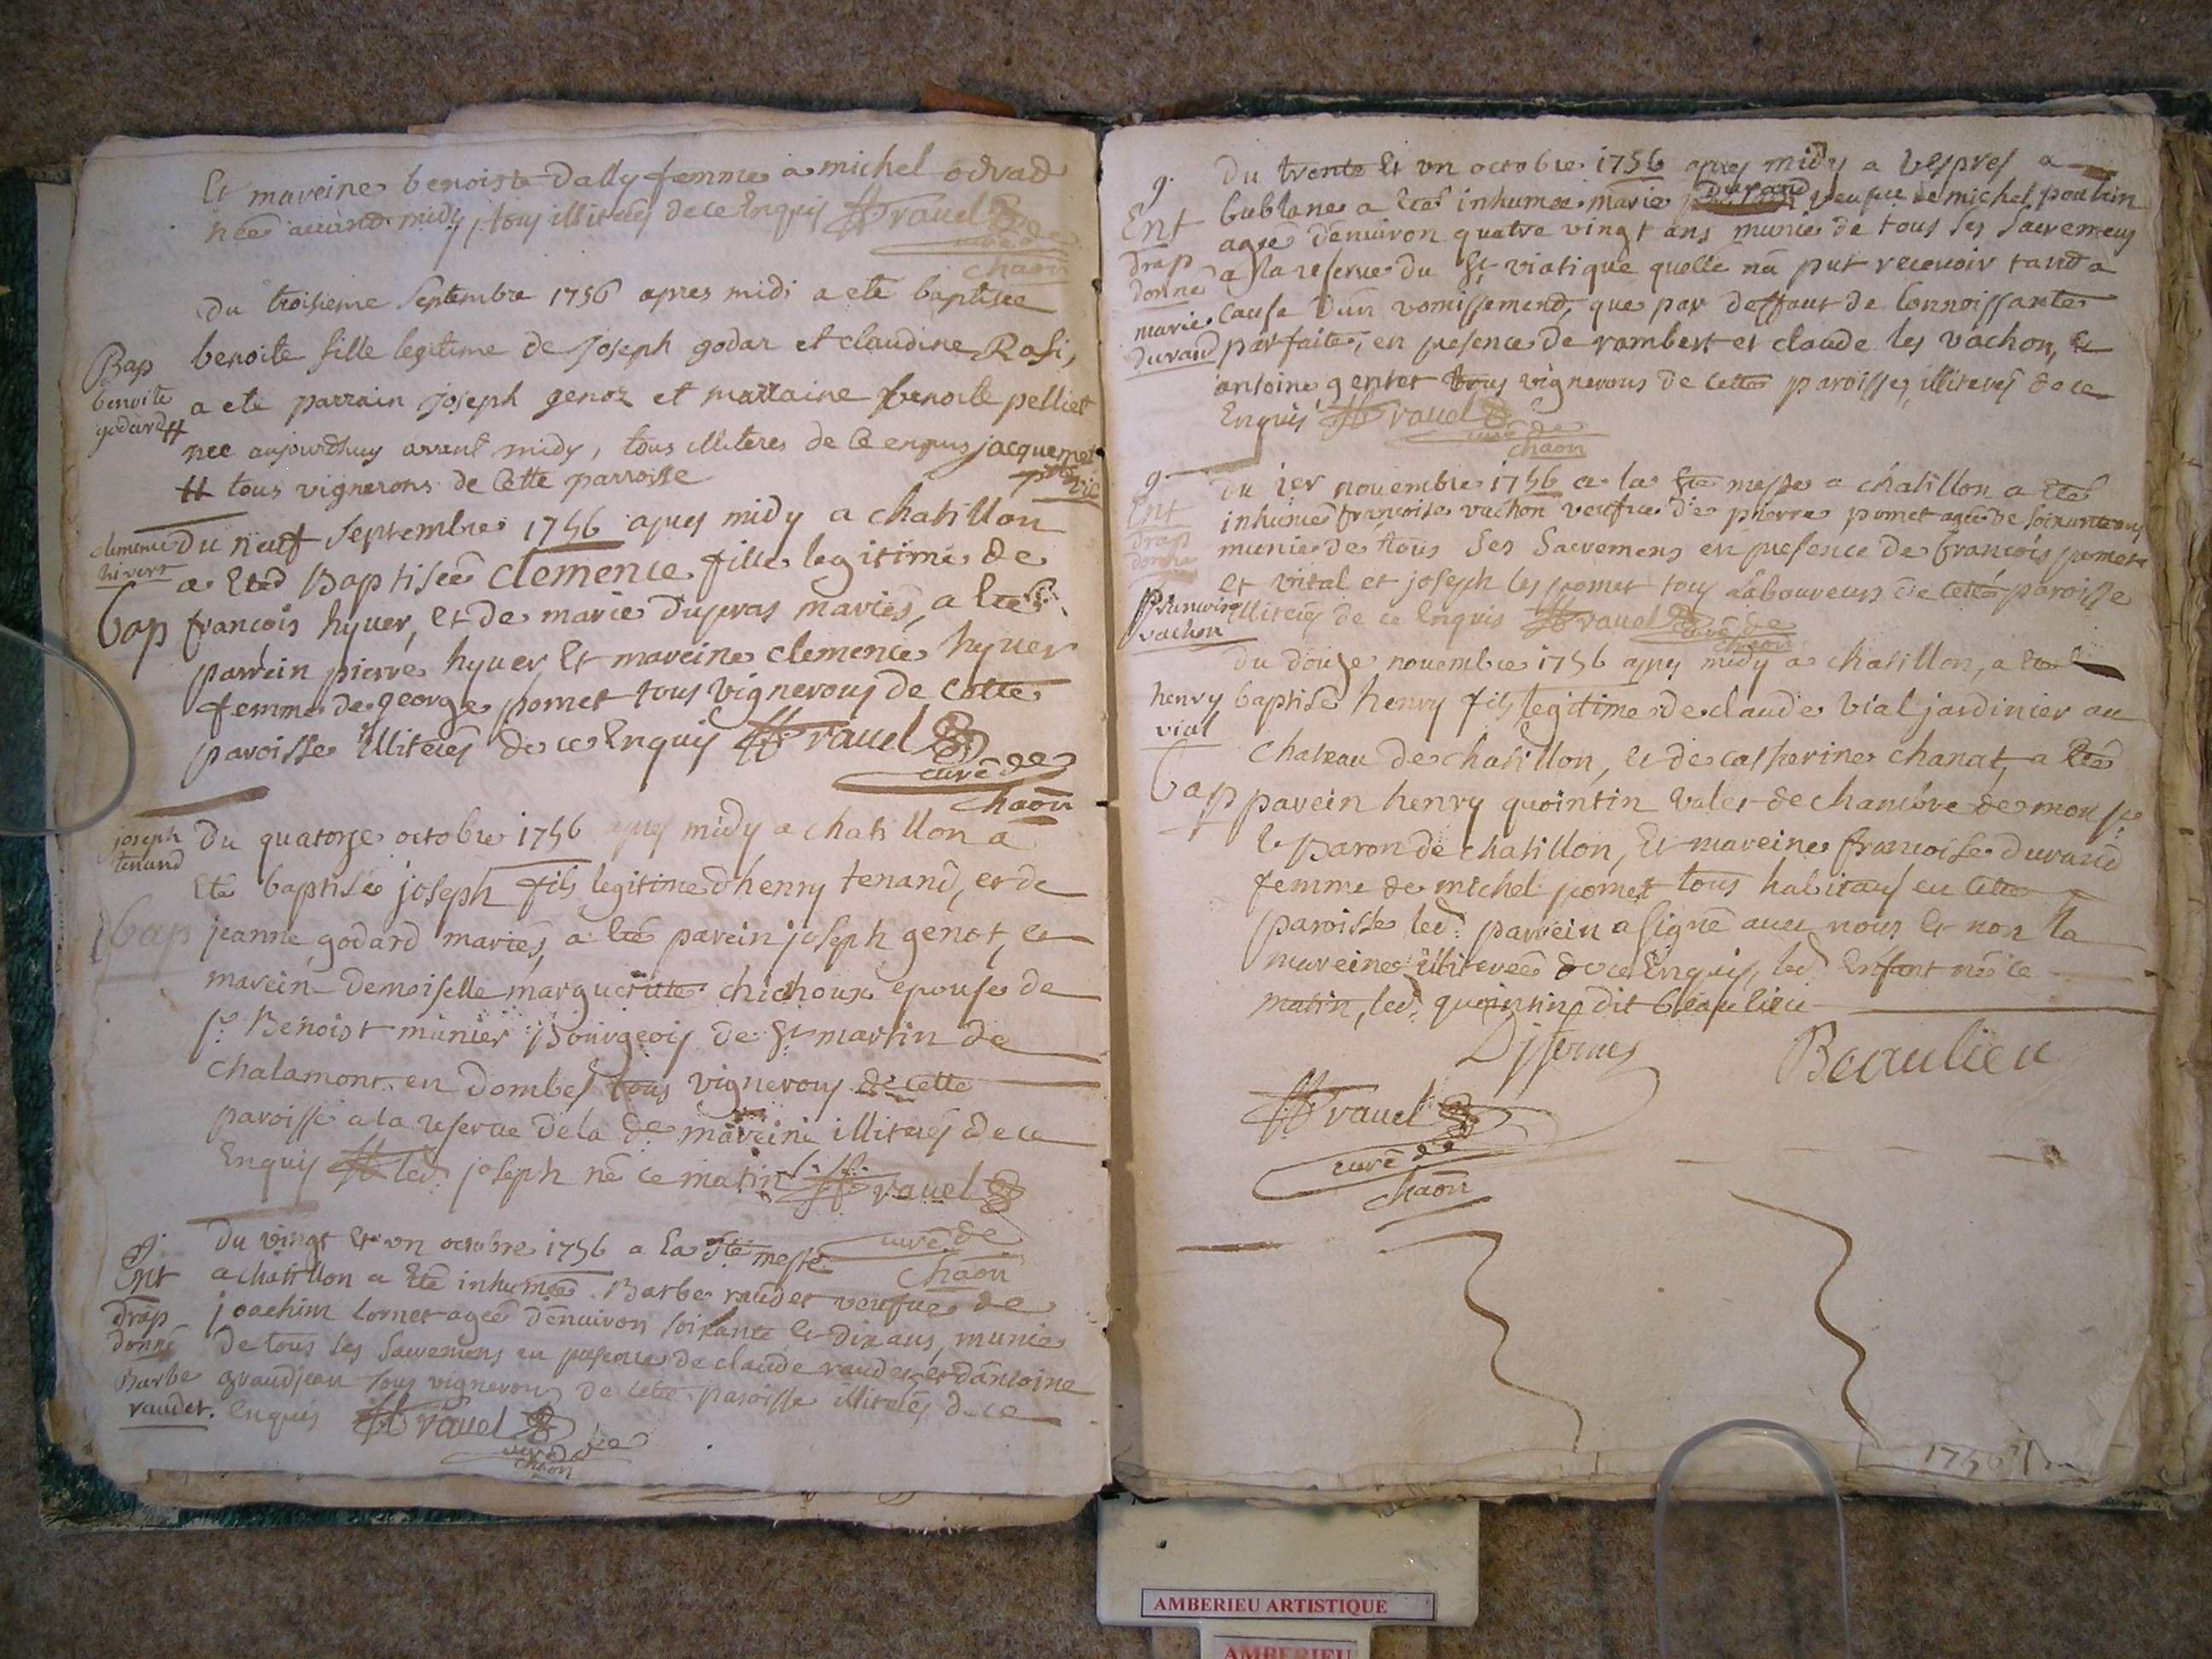 Et mareine benoiste Dally femme a michel
née avand midy, tous illiterés de ce Enquis ravel
curé de
chaõn
Du troisieme Septembre 1756 apres midi a eté baptisée
Bap
benoite
godard
benoite fille legitime de Joseph godar et claudine Rosi,
a eté parrain joseph genoz et marraine benoite pelliet
nee aujourdhuy avent midy, tous illiteres de ce enquis jacquemet
tous vignerons de Cette parroisse
vic
clemence
hivert
bap
Du neuf Septembre 1756 apres midy a chatillon
a Eté Baptisée clemence fille legitime de
francois hyver, et de marie mariés, a Eté
parrein pierre hyver Et mareine clemence hyver
femme de george pomet tous vignerons de Cette
paroisse illiterés de ce Enquis ravel
curé de
chaõn
joseph
tenand
bap
Du quatorze octobre 1756 apres midy a chatillon a
Eté baptisé joseph fils legitime dhenry tenand, et de
jeanne godard mariés, a Eté parein joseph genot, et
marein demoiselle marguerite chichoux epouse de
sr Benoist munier Bourgeois de St martin de
chalamont en Dombes tous vignerons de cette
paroisse a la reserve de la de mareine illiterés de ce
Enquis led. joseph né ce matin ravel
curé de
chaõn
g.
Ent
Drap
donné
Barbe
raudet.
Du vingt Et un octobre 1756 a la Ste messe
a chatillon a Eté inhumée Barbe raudet veufve de
joachim Cornet agée denviron soixante Et dix ans, munie
de tous ses sacremens en presence de claude raudet et dantoine
grandjean tous vignerons de Cette paroisse illiterés de ce
Enquis ravel
curé de
chaõn
g.
Ent
Drap
donné
marie
durand
Du trente Et un octobre 1756 apres midy a vespres a
bublane a Eté inhumée marie Durand veufve de michel poulin
agée denviron quatre vingt ans munie de tous ses Sacremens
a la reserve du St viatique quelle na put recevoir tand a
cause Dun vomissemend, que par deffaut de Connoissante
parfaite, en presence de rambert et claude les vachon, et
antoine gentet tous vignerons de cette paroisse, illiterés de ce
Enquis ravel
curé de
chaõn
g
Ent
Drap
donné
francoise
vachon
Du 1er novembre 1756 a la Ste messe a chatillon a Eté
inhumée francoise vachon veufve de pierre pomet agée de soixante ans
munie de tous Ses Sacremens en presence de francois pomet
et vital et joseph les pomet tous laboureurs de cette paroisse
illiterés de ce Enquis ravel
curé de
chaõn
henry
vial
bap
Du douze novembre 1756 apres midy a chatillon, a Eté
baptisé henry fils legitime de claude vial jardinier au
Chateau de chatillon, et de catherine chanat, a Eté
parein henry quointin valet de chambre de mon sr
le Baron de chatillon, Et mareine francoise durand
femme de michel pomet tous habitans en cette
paroisse led. parrein a signé avec nous Et non la
mareine illiterée de ce Enquis, led. Enfant né ce
matin, led. quointin dit beaulieu
Beaulieu
ravel
curé de
chaõn
1756
AMBERIEU ARTISTIQUE
AMBERIEU